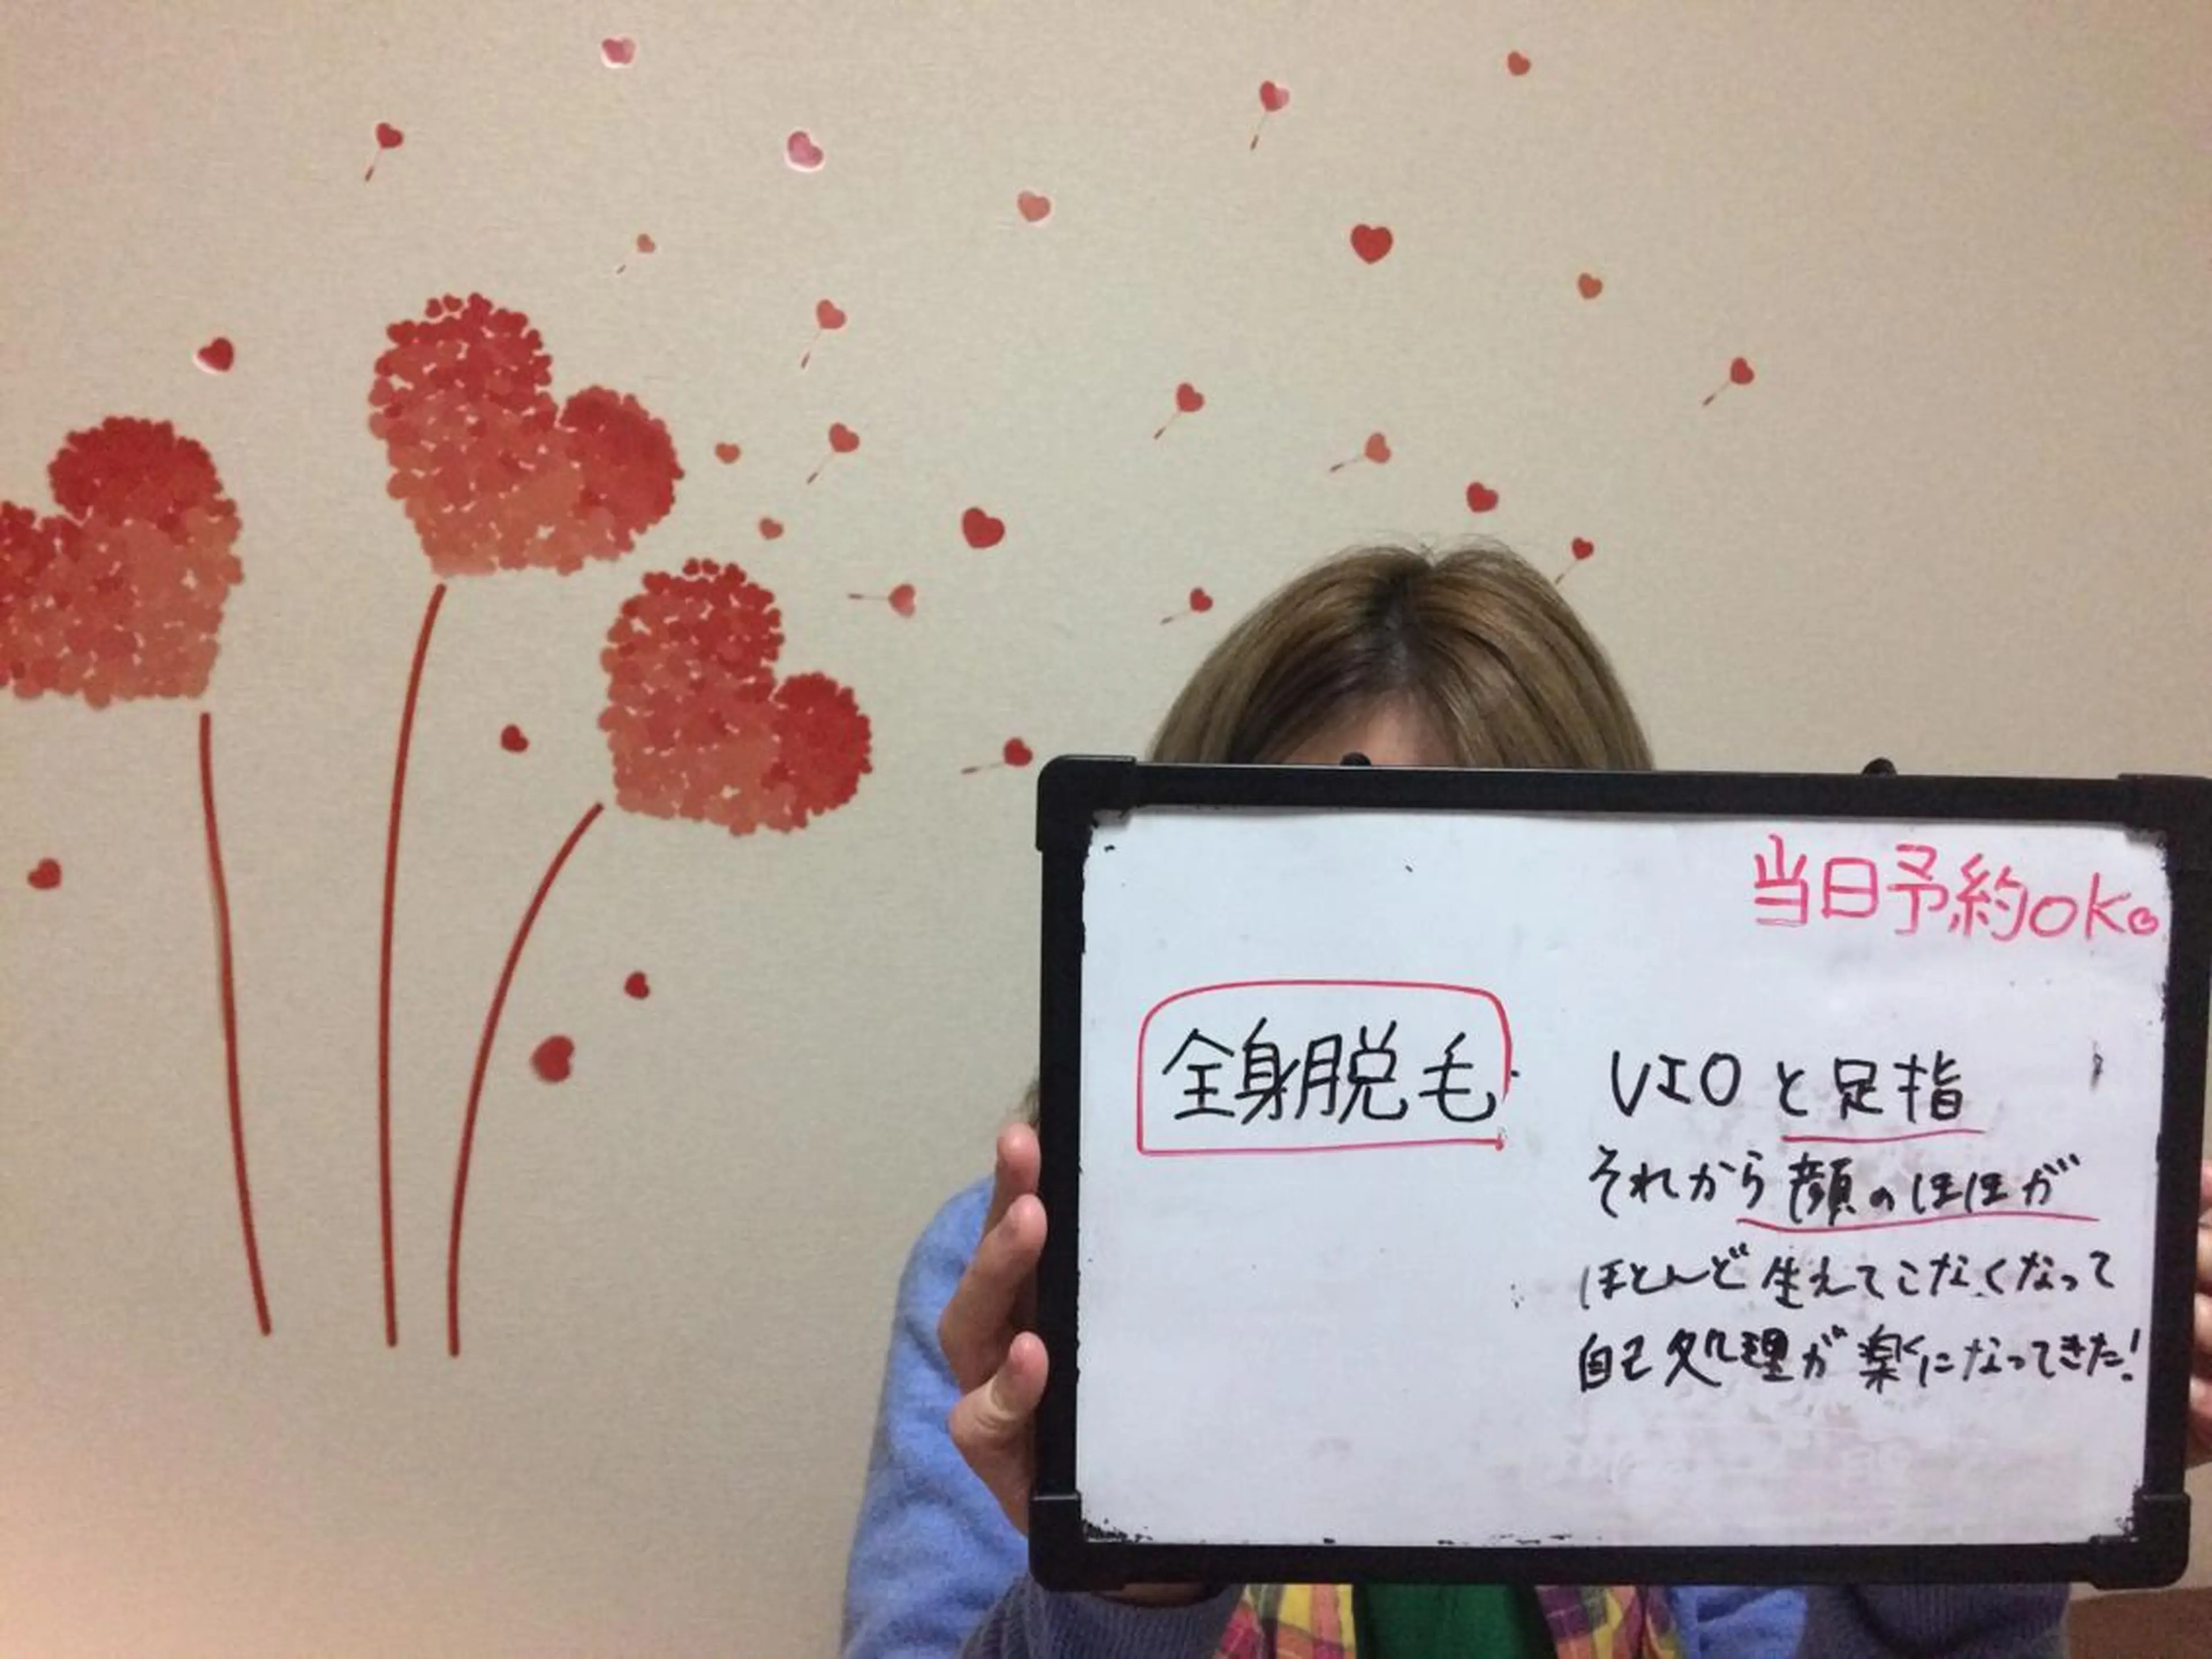 当日予約OK。
全身脱毛
VIOと足指
それから顔のほほが
ほとんど生えてこなくなって
自己処理が楽になってきた!